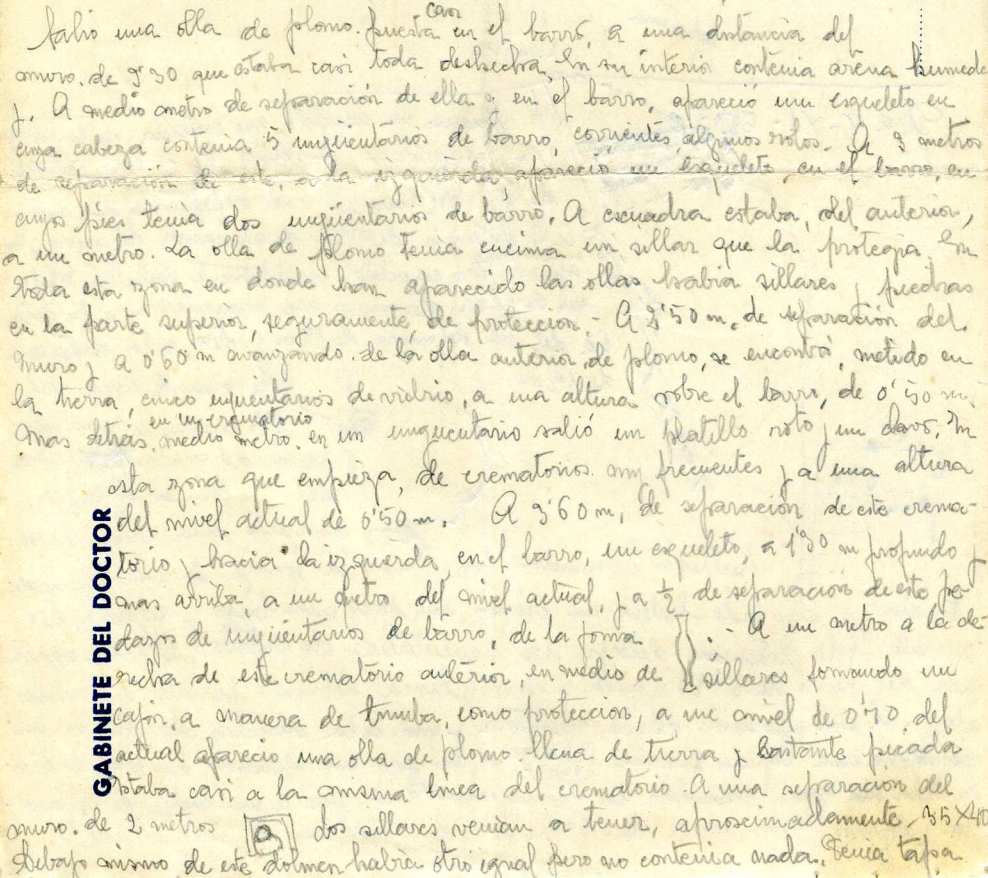 casi
Salio una olla de plomo. puesta en el barro, a una distancia del
muro. de 9'30 que estaba casi toda deshecha. En su interior contenia arena humeda
y. A medio metro de separación de ella y en el barro, apareció un esqueleto en
cuya cabeza contenia 5 ungüentarios de barro, corrientes, algunos rotos. A 3 metros
de separación de este, a la izquierda, apareció un esqueleto, en el barro, en
cuyos pies tenia dos ungüentarios de barro. A escuadra estaba, del anterior,
a un metro. La olla de plomo tenia encima un sillar que la protegia. En
toda esta zona en donde han aparecido las ollas habia sillares y piedras
en la parte superior, seguramente, de protección.- A 2'50 m. de separación del
muro y a 0'60 m avanzando. de la olla anterior de plomo, se encontró, metido en
la tierra, cinco ungüentarios de vidrio, a una altura sobre el barro, de 0'50 m.
en un crematorio
Mas detrás, medio metro. en un ungüentario salió un platillo roto y un clavo. En
esta zona que empieza, de crematorios muy frecuentes y a una altura
del nivel actual de 0'50 m. A 3'60 m, de separación de este crema-
torio y hacia la izquierda, en el barro, un esqueleto, a 1'30 m profundo y
mas arriba, a un metro del nivel actual, y a ½ de separación de este pe-
dazos de ungüentarios de barro, de la forma . - A un metro a la de-
recha de este crematorio anterior, en medio de sillares formando un
cajón, a manera de tumba, como protección, a un nivel de 0'70, del
actual aparecio una olla de plomo llena de tierra y bastante picada
Estaba casi a la misma linea del crematorio. A una separación del
muro. de 2 metros dos sillares venian a tener, aproximadamente, 35 X 40
Debajo mismo de este dolmen habia otro igual pero no contenia nada. Tenia tapa
GABINETE DEL DOCTOR